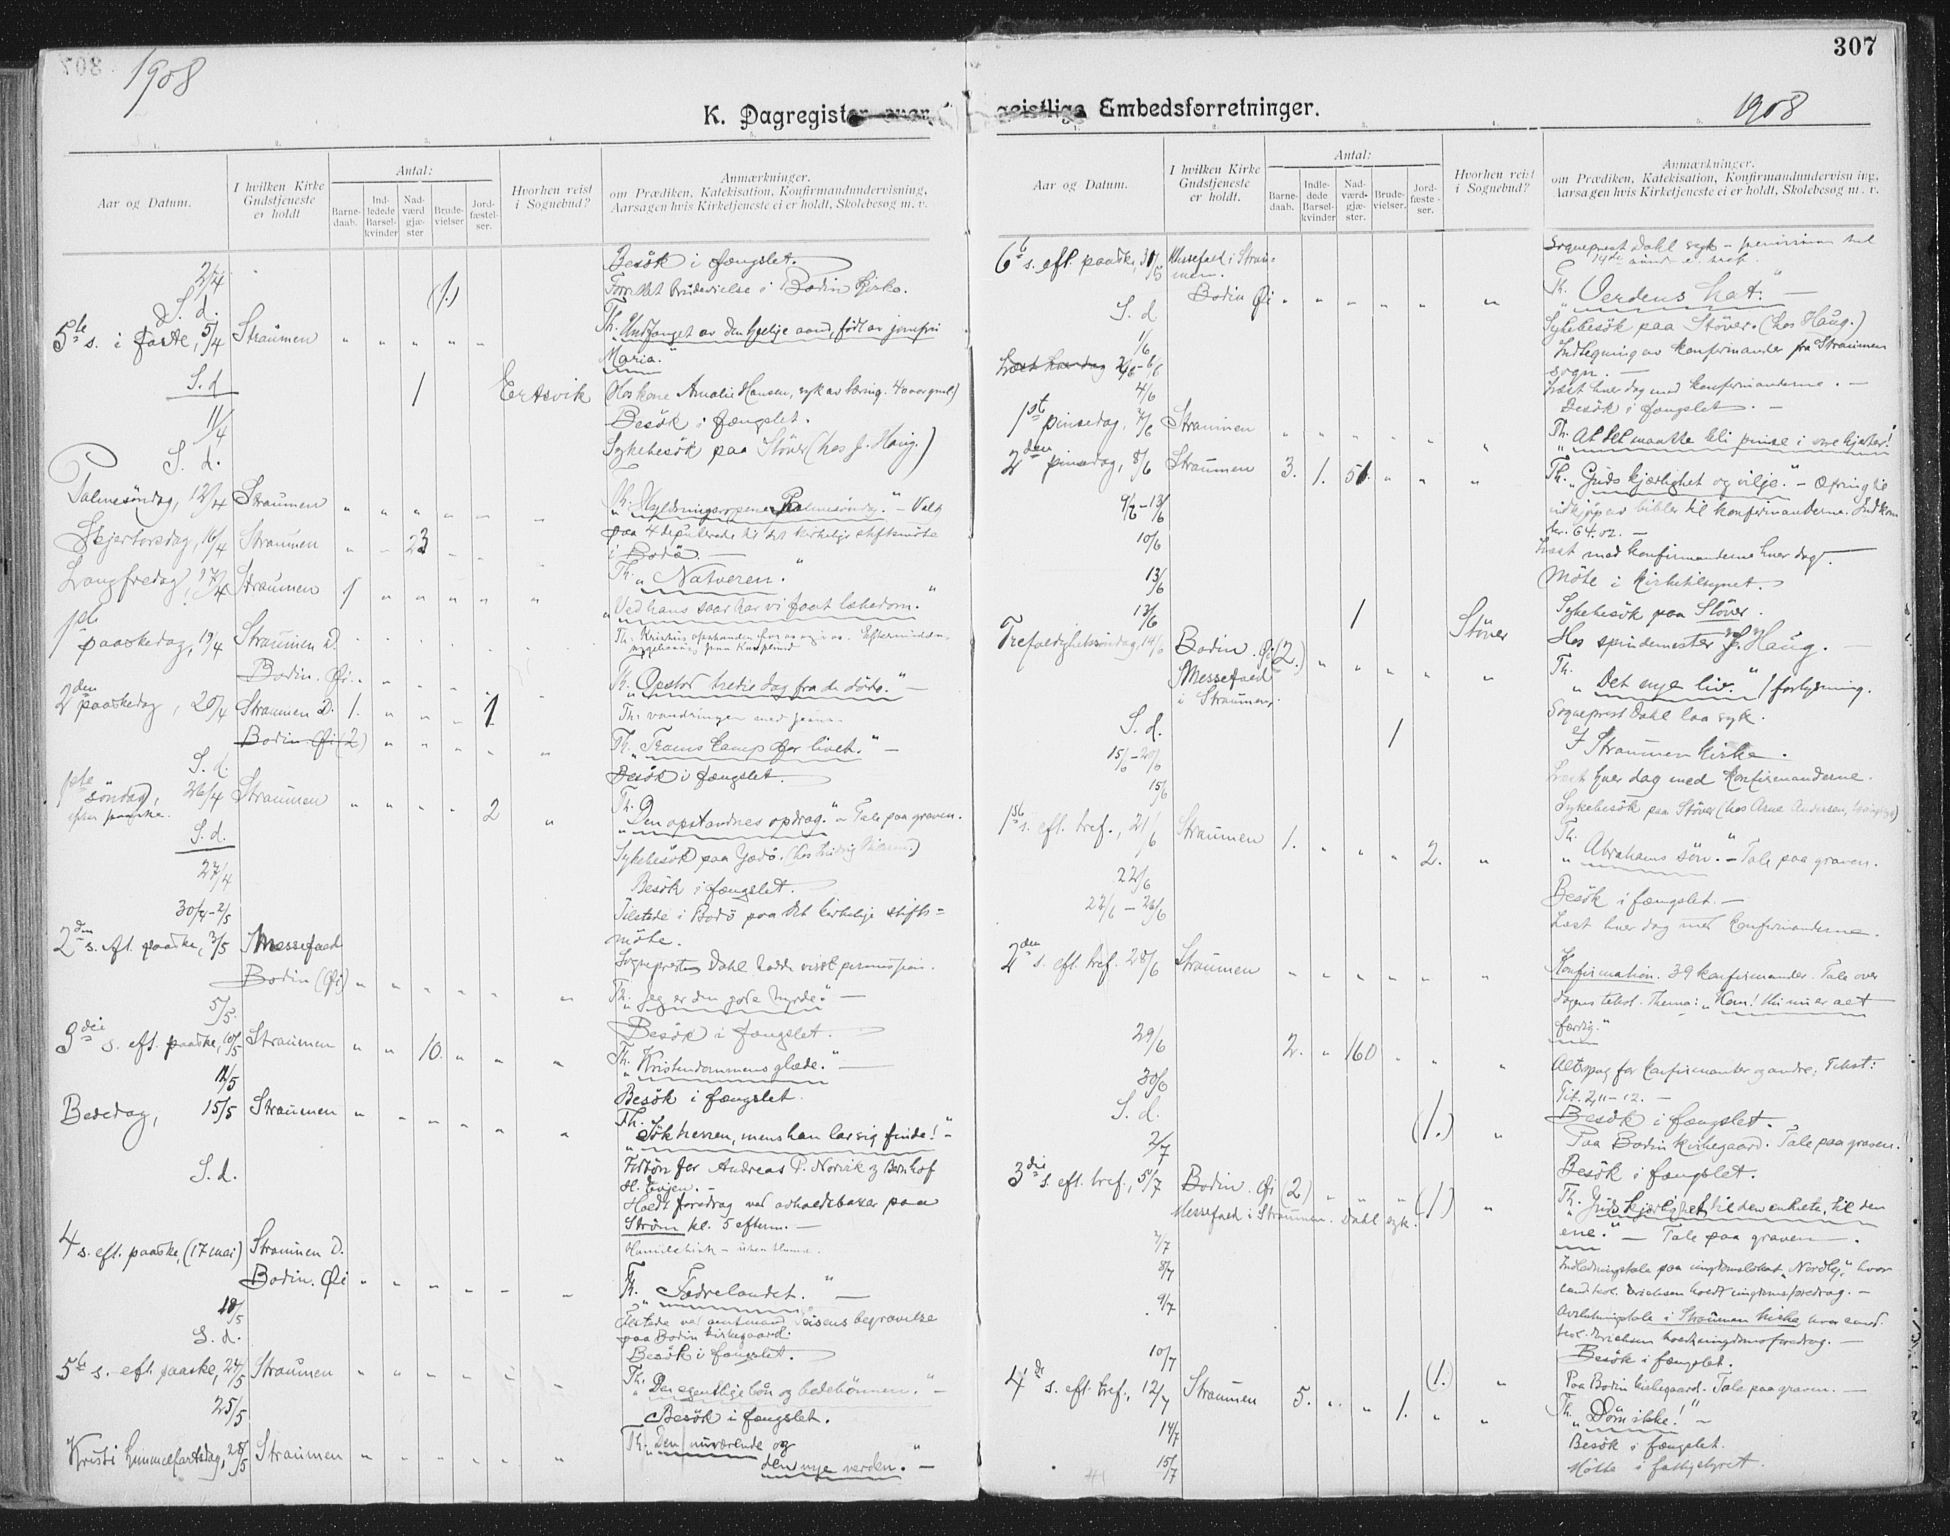 1908
K. Dagregister over
Aar og Datum.
I hvilken Kirke Gudstjeneste er holdt
Antal:
Barnedaab.
Indledede Barselkvinder
Nadværdgjæster
Brudevielser
Jordfæstelser.
Hvorhen reist i Sognebud?
Anmærkninger.
om Prædiken, Katekisation, Konfirmandundervisning,
Aarsagen hvis Kirketjeneste ei er holdt, Skolebesøg m. v.
2/4 Besök i fængslet.
S. d. (1.) Forrettet brudevielse i Bodin kirke.
5te s. i faste, 5/4 Straumen " " " " " Th. Undfanget av den hellige aand, født av jomfru
Maria."
S. d 1 Ertsvik Hos kone Amalie Hansen, syk av tæring. 40 aar gml)
11/4 Besök i fængslet.
S. d. Sykebesök paa Stöver (hos J. Haug.)
Palmesöndag, 12/4 Straumen " " " " " " Th. "Hyldningsropene Palmesöndag." - Valg
paa 4 deputerede til det kirkelige stiftsmöte
i Bodö.
Skjertorsdag, 16/4 Straumen " " 23 " " Th. "Natveren."
Langfredag, 17/4 Straumen 1 " " " " " "Ved hans saar har vi faat lægedom."
1ste paaskedag, 19/4 Straumen D.
Bodin. Øi. " " " " " Th. "Opstod tredie dag fra de döde." -
2den paaskedag, 20/4 Straumen D. 1. " " " 1 Th. vandringen med Jesus.
Bodin. Øi (2) " " " " " Th. "Troens kamp for livet." -
S. d. Besök i fængslet.
1ste söndag, 26/4 Straumen " " " " 2 " Th. "Den opstandnes opdrag." - Tale paa graven.
efter paaske.
S. d. Sykebesök paa
27/4 Besök i fængslet.
30/4-2/5 Tilstede i Bodö paa det kirkelige stifts=
möte.
2den s. eft. paaske, 3/5 Messefald Sogneprest Dahl hadde permission.
Bodin (Øi) " " " " " " Th. "Jeg er den gode hyrde." -
5/5. Besök i fængslet.
3die s. eft. paaske, 10/5 Straumen " " 10. " " " Th. "Kristendommens glæde." -
12/5 Besök i fængslet.
Bededag, 15/5 Straumen " " " " " Th. "Sök herren, mens han lar sig finde!" -
S. d. for Andreas P. Norvik og Bernhof
H. Evjen. -
Holdt foredrag ved avholdsbasar paa
Ström kl. 5 efterm. -
4 s. eft. paaske, (17 mai) Straumen D.
Bodin. Øi " " " " " " Th. "Fædrelandet." -
18/5 Tilstede ved amtmand begravelse
paa Bodin kirkegaard.
S. d. Besök i fængslet.
5te s. eft. paaske, 24/5 Straumen " " " " " " Th. "Den egentlige bön og bedebönnen." -
25/5 Besök i fængslet.
Kristi himmelfartsdag, 28/5 Straumen " " " " " " Th. "Den nuværende og
den nye verden." -
307
1908
geistlige Embedsforretninger.
Aar og Datum.
I hvilken Kirke Gudstjeneste er holdt.
Antal:
Barnedaab.
Indledede Barselkvinder
Nadværdgjæster.
Brudevielser.
Jordfæstelser.
Hvorhen reist i Sognebud?
Anmærkninger.
om Prædiken, Katekisation, Konfirmandundervisning,
Aarsagen hvis Kirketjeneste ei er holdt, Skolebesøg m. v.
6te s. eft. paaske, 31/5 Messefald i Straumen. Sogneprest Dahl syk - permission
Bodin Øi " " " " " " Th. "Verdens hat." -
S. d Sykebesök paa Stöver. (hos Haug.)
1/6 Indtegning av konfirmander fra Straumen
sogn. -
2/6-6/6 Læst hver dag med konfirmanderne. -
4/6 Besök i fængslet. -
1ste pinsedag, 7/6 Straumen " " " " " " Th. "At det maatte bli pinse i vore hjerter!"
2den pinsedag, 8/6 Straumen 3. 1. 51. " " " Th. "Guds kjærlighet og vilje." - Ofring til
indkjöp av bibler til konfirmanderne. Indkom
kr. 64.02. -
9/6-13/6 Læst med konfirmanderne hver dag. -
10/6 Möte i kirketilsynet.
13/6 Sykebesök paa Stöver.
13/6 1 Stöver Hos spindemester J. Haug. -
Trefoldighetssöndag, 14/6 Bodin. Øi (2.) " " " " " Th. "Det nye liv." / forlysning.
Messefald i Straumen. Sogneprest Dahl laa syk.
S. d. 1 I Straumen kirke.
15/6-20/6 Læst hver dag med konfirmanderne.
15/6 Sykebesök paa Stöver (hos Arne Andersen,
1ste s. eft. tref., 21/6 Straumen 1. " " " 2. " Th. "Abrahams sön." - Tale paa graven.
22/6 Besök i fængslet. -
22/6-26/6 Læst hver dag med konfirmanderne.
2den s. eft. tref. 28/6 Straumen " " " " " " Konfirmation. 39 konfirmander. Tale over
dagens tekst. Thema: "Kom! thi nu er alt
færdig."
29/6 2. " 160 " " " Altergang for konfirmanter og andre; Tekst:
Tit. 2,11-12. -
30/6 Besök i fængslet.
S. d. (1.) " Paa Bodin kirkegaard. Tale paa graven.
2/7 Besök i fængslet.
3die s. eft. tref., 5/7 Bodin. Øi (2) " " " (1) " Th. "Guds kjærlighet til den enkelte, til den
Messefald i Straumen. Dahl syk. ene." - Tale paa graven.
7/7
8/7 Indledningstale paa ungdomslokalet "Nordlys", hvor
cand. teol. Erichsen holdt ungdomsforedrag. -
9/7 Avslutningstale i Straumen kirke, hvor cand.
teol. Erichsen holdt ungdomsforedrag. -
10/7 Besök i fængslet.
(1.) " Paa Bodin kirkegaard. Tale paa graven. -
4de s. eft. tref., 12/7 Straumen 5. " " 1. " " Th. "Döm ikke!" -
14/7 Besök i fængslet.
15/7 Möte i fattigstyret.